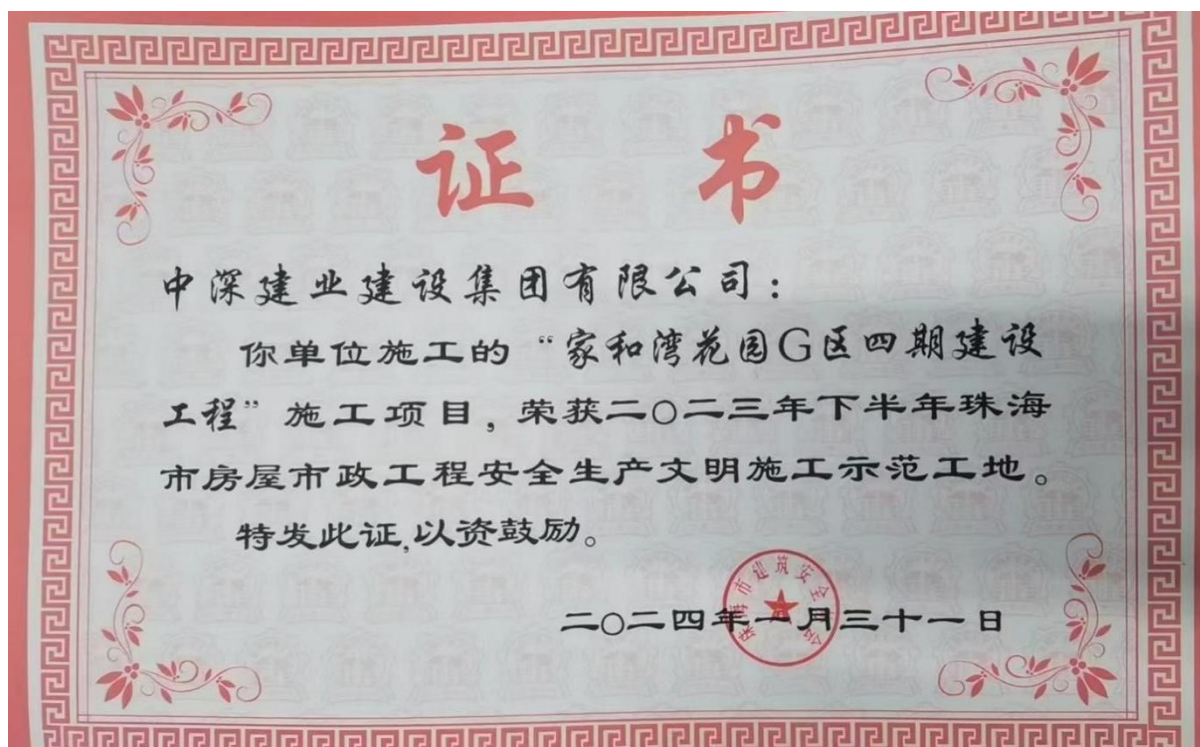 证书
中深建业建设集团有限公司：
你单位施工的“家和湾花园G区四期建设
工程”施工项目，荣获二〇二三年下半年珠海
市房屋市政工程安全生产文明施工示范工地。
特发此证，以资鼓励。
珠海市建筑安全协会
二〇二四年一月三十一日